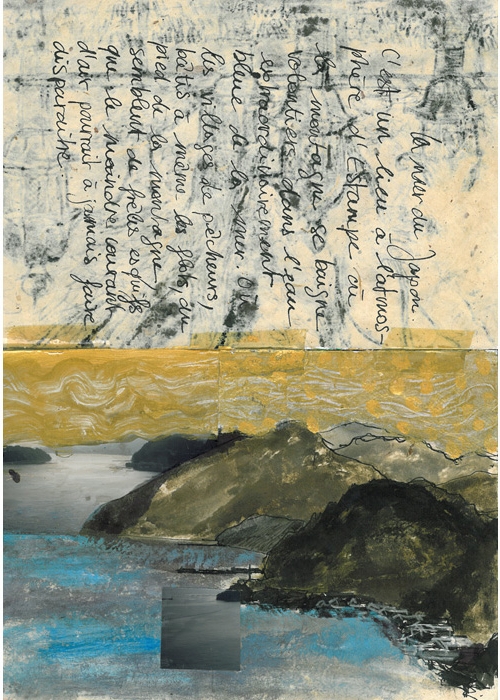 La mer du Japon.
C'est un lieu à l'atmos-
phère d'Estampe où
la montagne se baigne
volontiers dans l'eau
extraordinairement
bleue de la mer. Où
les villages de pêcheurs,
bâtis à même les flancs du
pied de la montagne
semblent de frêles esquifs
que le moindre courant
d'air pourrait à jamais faire
disparaître.